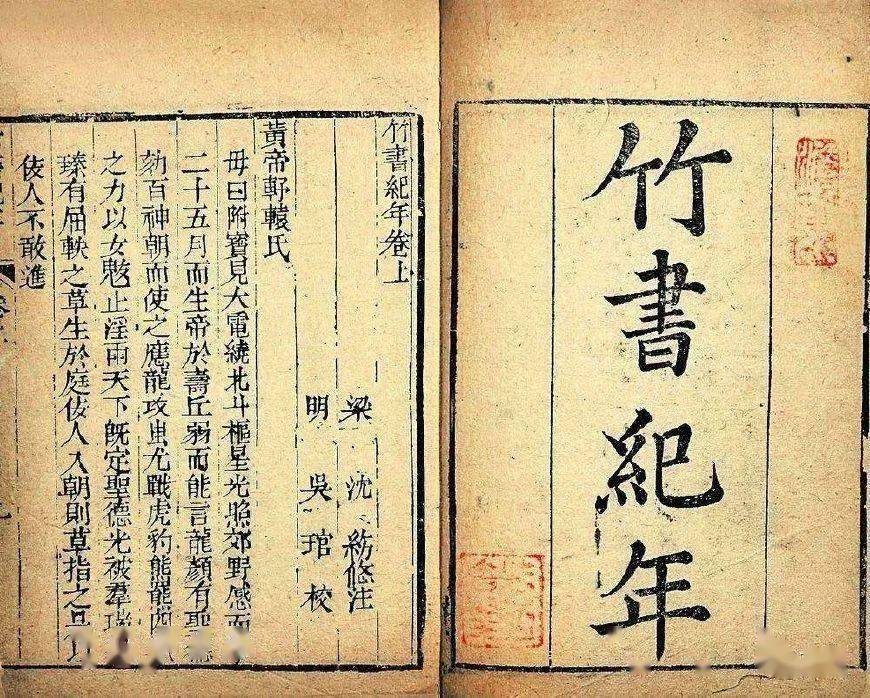 竹書紀年
竹書紀年卷上
梁 沈 約 修注
明 吳 琯 校
黃帝軒轅氏
母曰附寶見大電繞北斗樞星光照郊野感而
二十五月而生帝於壽丘弱而能言龍顏有聖
劾百神朝而使之應龍攻蚩尤戰虎豹熊羆四
之力以女魃止淫雨天下既定聖德光被羣瑞
臻有屈軼之草生於庭佞人入朝則草指之是以
佞人不敢進